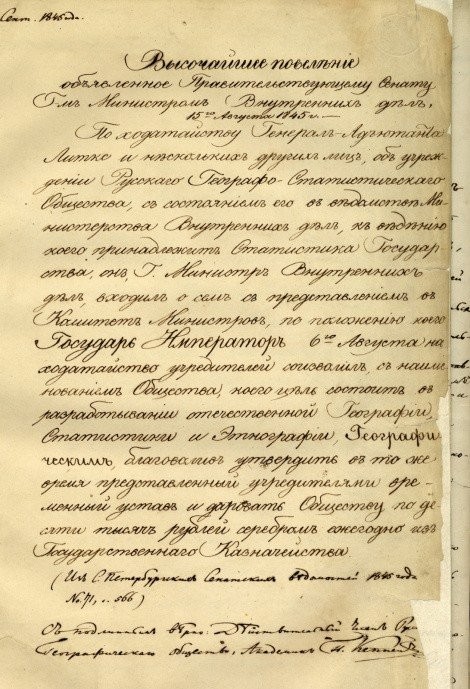 Сент. 1845 года.
Высочайшее повелѣніе
объявленное Правительствующему Сенату
Г-мъ Министромъ Внутреннихъ дѣлъ,
15го Августа 1845 г.—
По ходатайству Генералъ-Адъютанта
Литке и нѣсколькихъ другихъ лицъ, объ учреж-
деніи Русскаго Географо-Статистическаго
Общества, съ состояніемъ его въ вѣдомствѣ Ми-
нистерства Внутреннихъ дѣлъ, къ вѣдѣнію
коего принадлежитъ Статистика Государ-
ства, онъ Г. Министръ Внутреннихъ
дѣлъ входилъ о семъ съ представленіемъ въ
Комитетъ Министровъ, по положенію коего
Государь Императоръ 6го Августа на
ходатайство учредителей соизволилъ, съ наиме-
нованіемъ Общества, коего цѣль состоитъ въ
разработываніи отечественной Географіи,
Статистики и Этнографіи, Географи-
ческимъ, благоволивъ утвердить въ то же
время представленный учредителями вре-
менный уставъ и даровать Обществу по де-
сяти тысячъ рублей серебромъ ежегодно изъ
Государственнаго Казначейства.
(Изъ С. Петербургскихъ Сенатскихъ вѣдомостей 1845 года
No. 71, с. 566)
Съ подлиннымъ вѣрно: Дѣйствительный Членъ Рус
Географическаго общества, Академикъ П. Кеппенъ